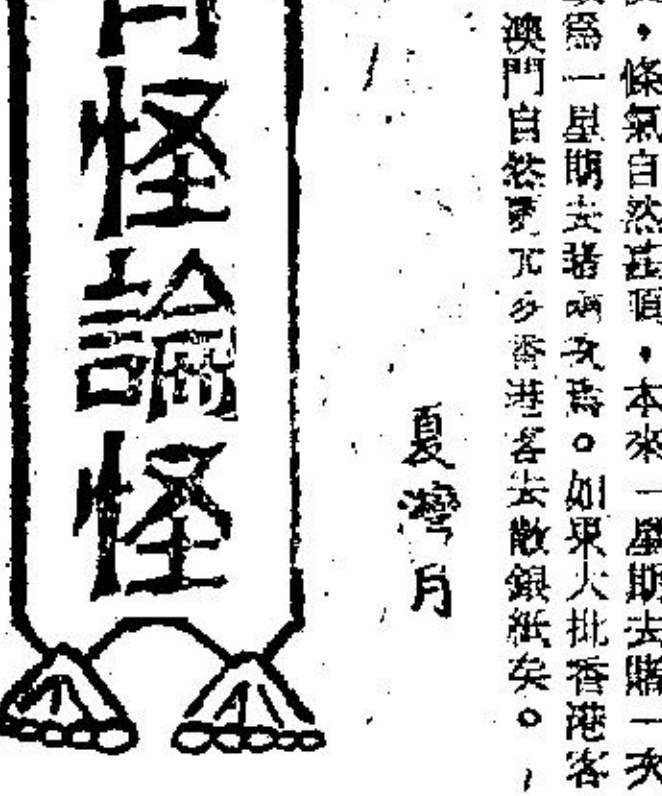 ，條氣自然甚順，本來一星期去賭一次
為一星期去賭兩次焉。如果大批香港客
澳門自然更冗多香港客去散銀紙矣。
夏灣月
怪論怪